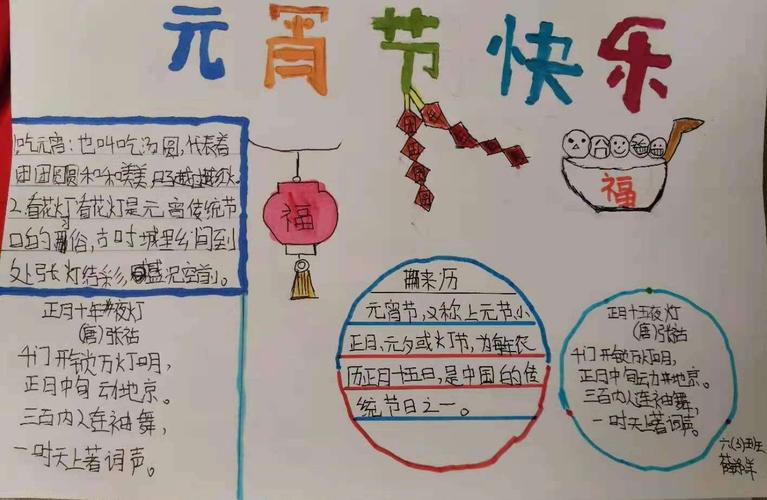 元宵节快乐
吃元宵：也叫吃汤圆，代表着
团团圆圆和和美美，日子越过越红火。
2.看花灯：看花灯是元宵传统节
日的习俗，古时城里乡间到
处张灯结彩，盛况空前。
正月十五夜灯
（唐）张祜
千门开锁万灯明，
正月中旬动地京。
三百内人连袖舞，
一时天上著词声。
福
福
来历
元宵节，又称上元节、小
正月、元夕或灯节，为每年农
历正月十五日，是中国的传
统节日之一。
正月十五夜灯
（唐）张祜
千门开锁万灯明，
正月中旬动地京。
三百内人连袖舞，
一时天上著词声。
六(3)班